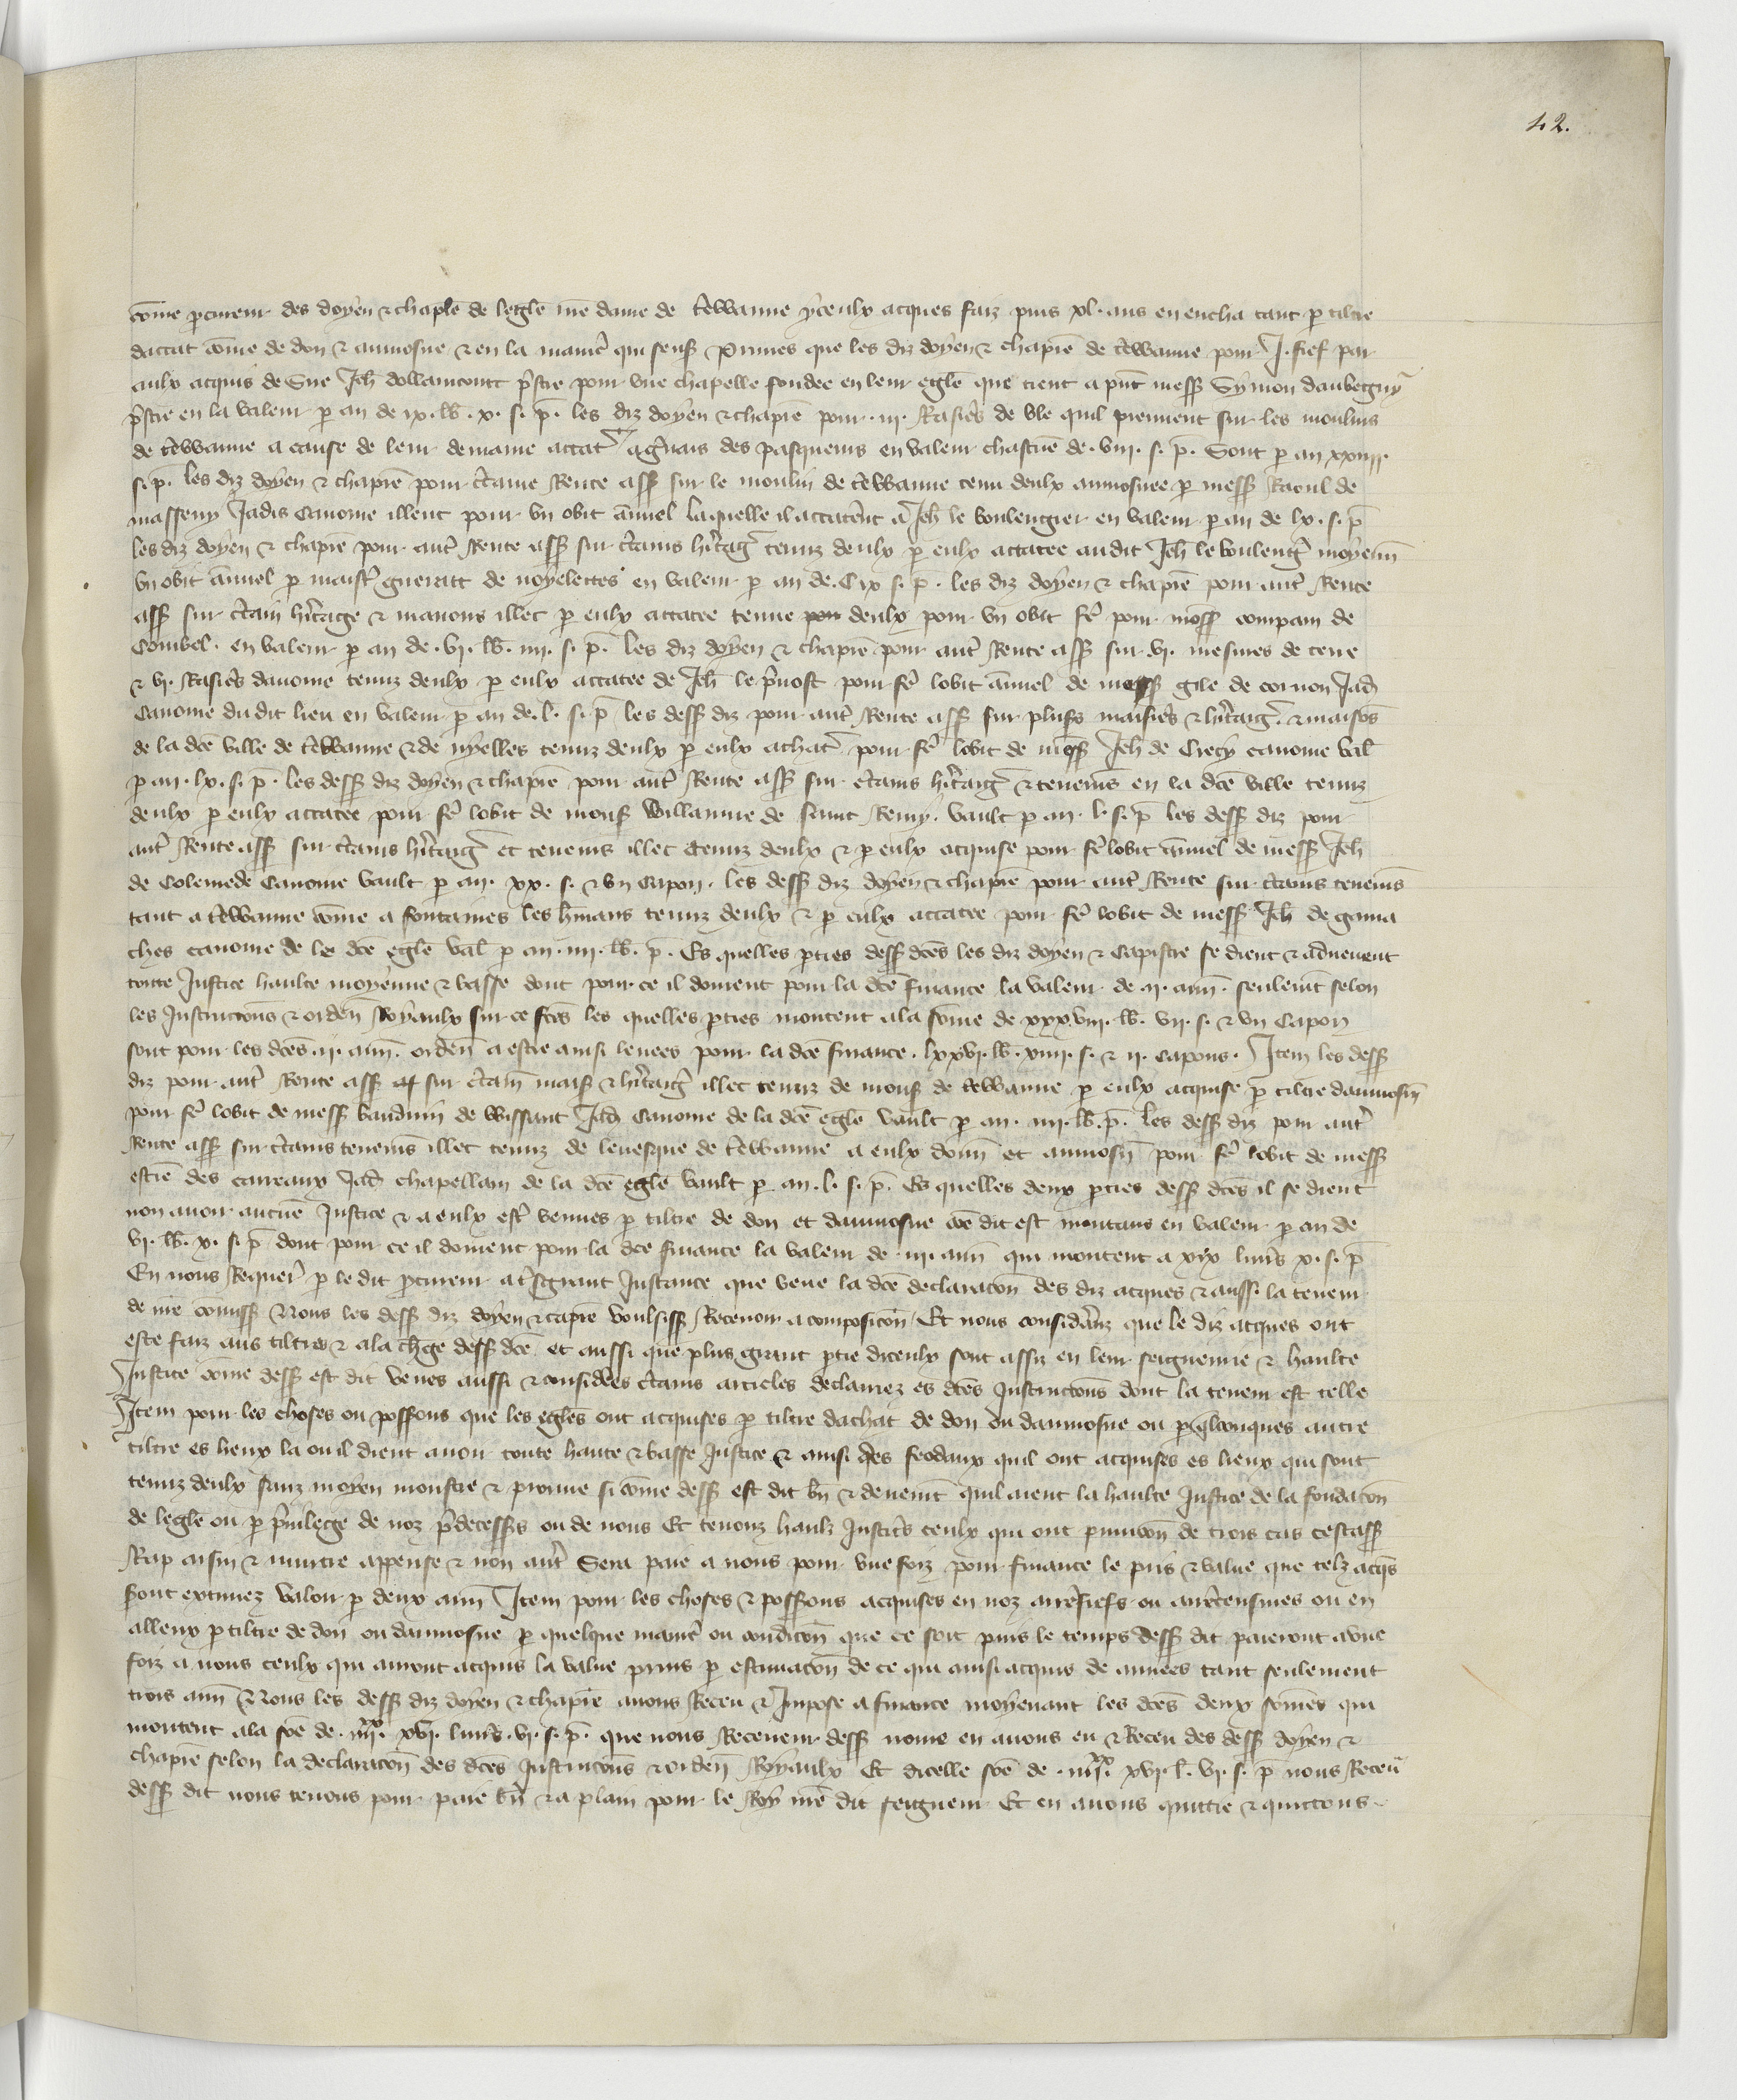 42.
cōme pcureur des doyen & chaplē de leglē nrē dame de t̄ewanne yceulx acques faiz puis xl. ans en encha tant p tiltre
dactat cōme de don & aumosne & en la manier̄ qui senß Primes que les diz doyen & chapīe de t̄ewanne pour .I. fief par
aulx acquis de Sire Jeh̄ dollaincourt p̄stre pour vne chapelle fondee en leur eglē que tient a pn̄t messß Symon daubegny
p̄stre en la valeur p an de ix. lb̄. x. s. p̄. les diz doyen & chapīe pour .iij. Rasier̄s de ble quil prennent sur les moulins
de t̄ewanne a cause de leur demaine actat̄ des pasquenis en valeur chascūe de .viij. s. p̄. Sont p an xxiiij.
s. p̄. les diz doyen & chapīe pour c̄taine Rente assß sur le moulin de t̄ewanne tenu deulx aumosnee p messß Raoul de
masseny Jadis Canoine illeuc pour vn obit ānuel laquelle il actater̄nt a Jeh̄ le boulengier en valeur p an de lx. s. p̄
les diz doyen & chapīe pour aut̄ Rente assß sur c̄tains h̄itaiḡ tenuz deulx p eulx actatee audit Jeh̄ le boulenḡ moyenn̄
vn obit ānuel p maist̄ gueratt de noyelectes en valeur p an de. Cix s. p̄. les diz doyen & chapīe pour aut̄ Rente
assß sur c̄tain h̄itage & manoirs illec p eulx actatee tenue deulx pour vn obit fē pour messß compain de
Combel. en valeur p an de .vi. lb̄. iiij. s. p̄. les diz doyen & chapīe pour aut̄ Rente assß sur .vi. mesures de terre
& vi. Rasier̄s dauoine tenuz deulx p eulx actatee de Jeh̄ le p̄uost pour fē lobit ānuel de messß gile de cornon Jad̄
Canoine du dit lieu en valeur p an de. l. s. p̄ les dessß diz pour aut̄ Rente assß sur plußs maisier̄s & h̄itaiḡ. & maisōs
de la dcē ville de t̄ewanne & de nyelles tenuz deulx p eulx achat̄ pour fē lobit de messß Jeh̄ de Crecy canoine val̄
p an. lx. s. p̄. les dessß diz doyen & chapīe pour aut̄ Rente assß sur c̄tains h̄itaiḡ & tenemēs en la dcē ville tenuz
deulx p eulx actatee pour fē lobit de monß Willaume de saint Remy. vault p an. l. s. p̄ les dessß diz pour
aut̄ Rente assß sur c̄tains h̄itaiḡ et tenemēs illec tenuz deulx & p eulx acquise pour fē lobit ānuel de messß Jeh̄
de Colemede Canoine vault p an. xx. s. & vn Capon. les dessß diz doyen & chapīe pour aut̄ Rente sur c̄tains tenemēs
tant a t̄ewanne cōme a fontaines les h̄mans tenuz deulx & p eulx actatee pour fē lobit de messß Jeh̄ de gama
ches canoine de le dcē eglē val̄ p an. iiij. lb̄. p̄. Es quelles pties dessß dcēs les diz doyen & Capistre se dient & aduenent
toute Justice haulte moyenne & basse dont pour ce il doiuent pour la dcē finance la valeur de .ij. ann̄. seulemt̄ selon
les Instructōns & ordēn Royaulx sur ce fcēs les quelles pties montent a la sōme de xxxviij. lb̄. vij. s. & vn Capon
sont pour les dcēs .ij. ann̄. ordēn a estre ainsi leuees pour la dcē finance. lxxvi. lb̄. xiiij. s. & ij. Capons. Item les dessß
diz pour aut̄ Rente assß sur c̄tain maiß & h̄itaiḡ illec tenuz de monß de t̄ewanne p eulx acquise p tiltre daumosn̄
pour fē lobit de messß bauduin de Wissant Jad̄ Canoine de la dcē eglē vault p an. iiij. lb̄. p̄. les dessß diz pour aut̄
Rente assß sur c̄tains tenemēs illec tenuz de leuesque de t̄ewanne a eulx donn̄ et aumosn̄ pour fē lobit de messß
estiē des careaux Jad̄ chapellain de la dcē eglē vault p an. l. s. p̄. Es quelles deux pties dessß dcēs il se dient
non auoir aucūe Justice & a eulx est̄ venues p tiltre de don et daumosne cōe dit est montans en valeur p an de
vi. lb̄. x. s. p̄ dont pour ce il doiuent pour la dcē finance la valeur de .iij. ann̄ qui montent a xix liur̄s x. s. p̄
En nous Requer̄ p le dit pcureur a t̄sgrant Instance que veue la dcē declaracōn des diz acques & aussi la teneur
de nrē cōmissß Nous les dessß diz doyen & capīe voulsissß Receuoir a composicōn Et nous considerāz que le diz acques ont
este faiz aus tiltres & a la ch̄ge dessß dcē et aussi que plus grant ptie diceulx sont assiz en leur seigneurie & haulte
Justice cōme dessß est dit veues aussi & considerēes c̄tains articles declairez es dcēs Instructōns dont la teneur est telle
Item pour les choses ou possßons que les eglēs ont acquises p tiltre dachat de don ou daumosne ou p qlconques autre
tiltre es lieux la ou il dient auoir toute haute & basse Justice & ainsi des feodaux quil ont acquises es lieux qui sont
tenuz deulx sanz moyen monstre & prouue si cōme dessß est dit bn̄ & deuemt̄ quil aient la haulte Justice de la fondacōn
de leglē ou p p̄uilege de noz p̄decessßs ou de nous Et tenonz haulz Justiciers ceulx qui ont punicōn de trois cas cestassß
Rap arsin & murtre appense & non aut̄ Sera paie a nous pour vne foiz pour finance le pris & value que telz acqs̄
sont extimez valoir p deux ann̄ Item pour les choses & possßons acquises en noz arrefiefs ou arrecensiues ou en
alleux p tiltre de don ou daumosne p quelque manier̄ ou condicōn que ce soit puis le temps dessß dit paieront a vne
foiz a nous ceulx qui auront acquis la value prins p estimacōn de ce qui ainsi acquis de annees tant seulement
trois ann̄ Nous les dessß diz doyen & chapīe auons Receu & Impose a finance moyenant les dcēs deux sōmes qui
montent a la sōe de .iiijxx. xvi. liur̄s .vi. s. p̄. que nous Receueur dessß nome en auons eu & Receu des dessß doyen &
chapīe selon la declaracōn des dcēs Instructōns & ordēn Royaulx Et dicelle sōe de .iiijxx. xvi. l. vi. s. p̄ nous Receu̅
dessß dit nous tenons pour paie bn̄ & a plain pour le Roy nrē dit seigneur Et en auons quittie & quittons